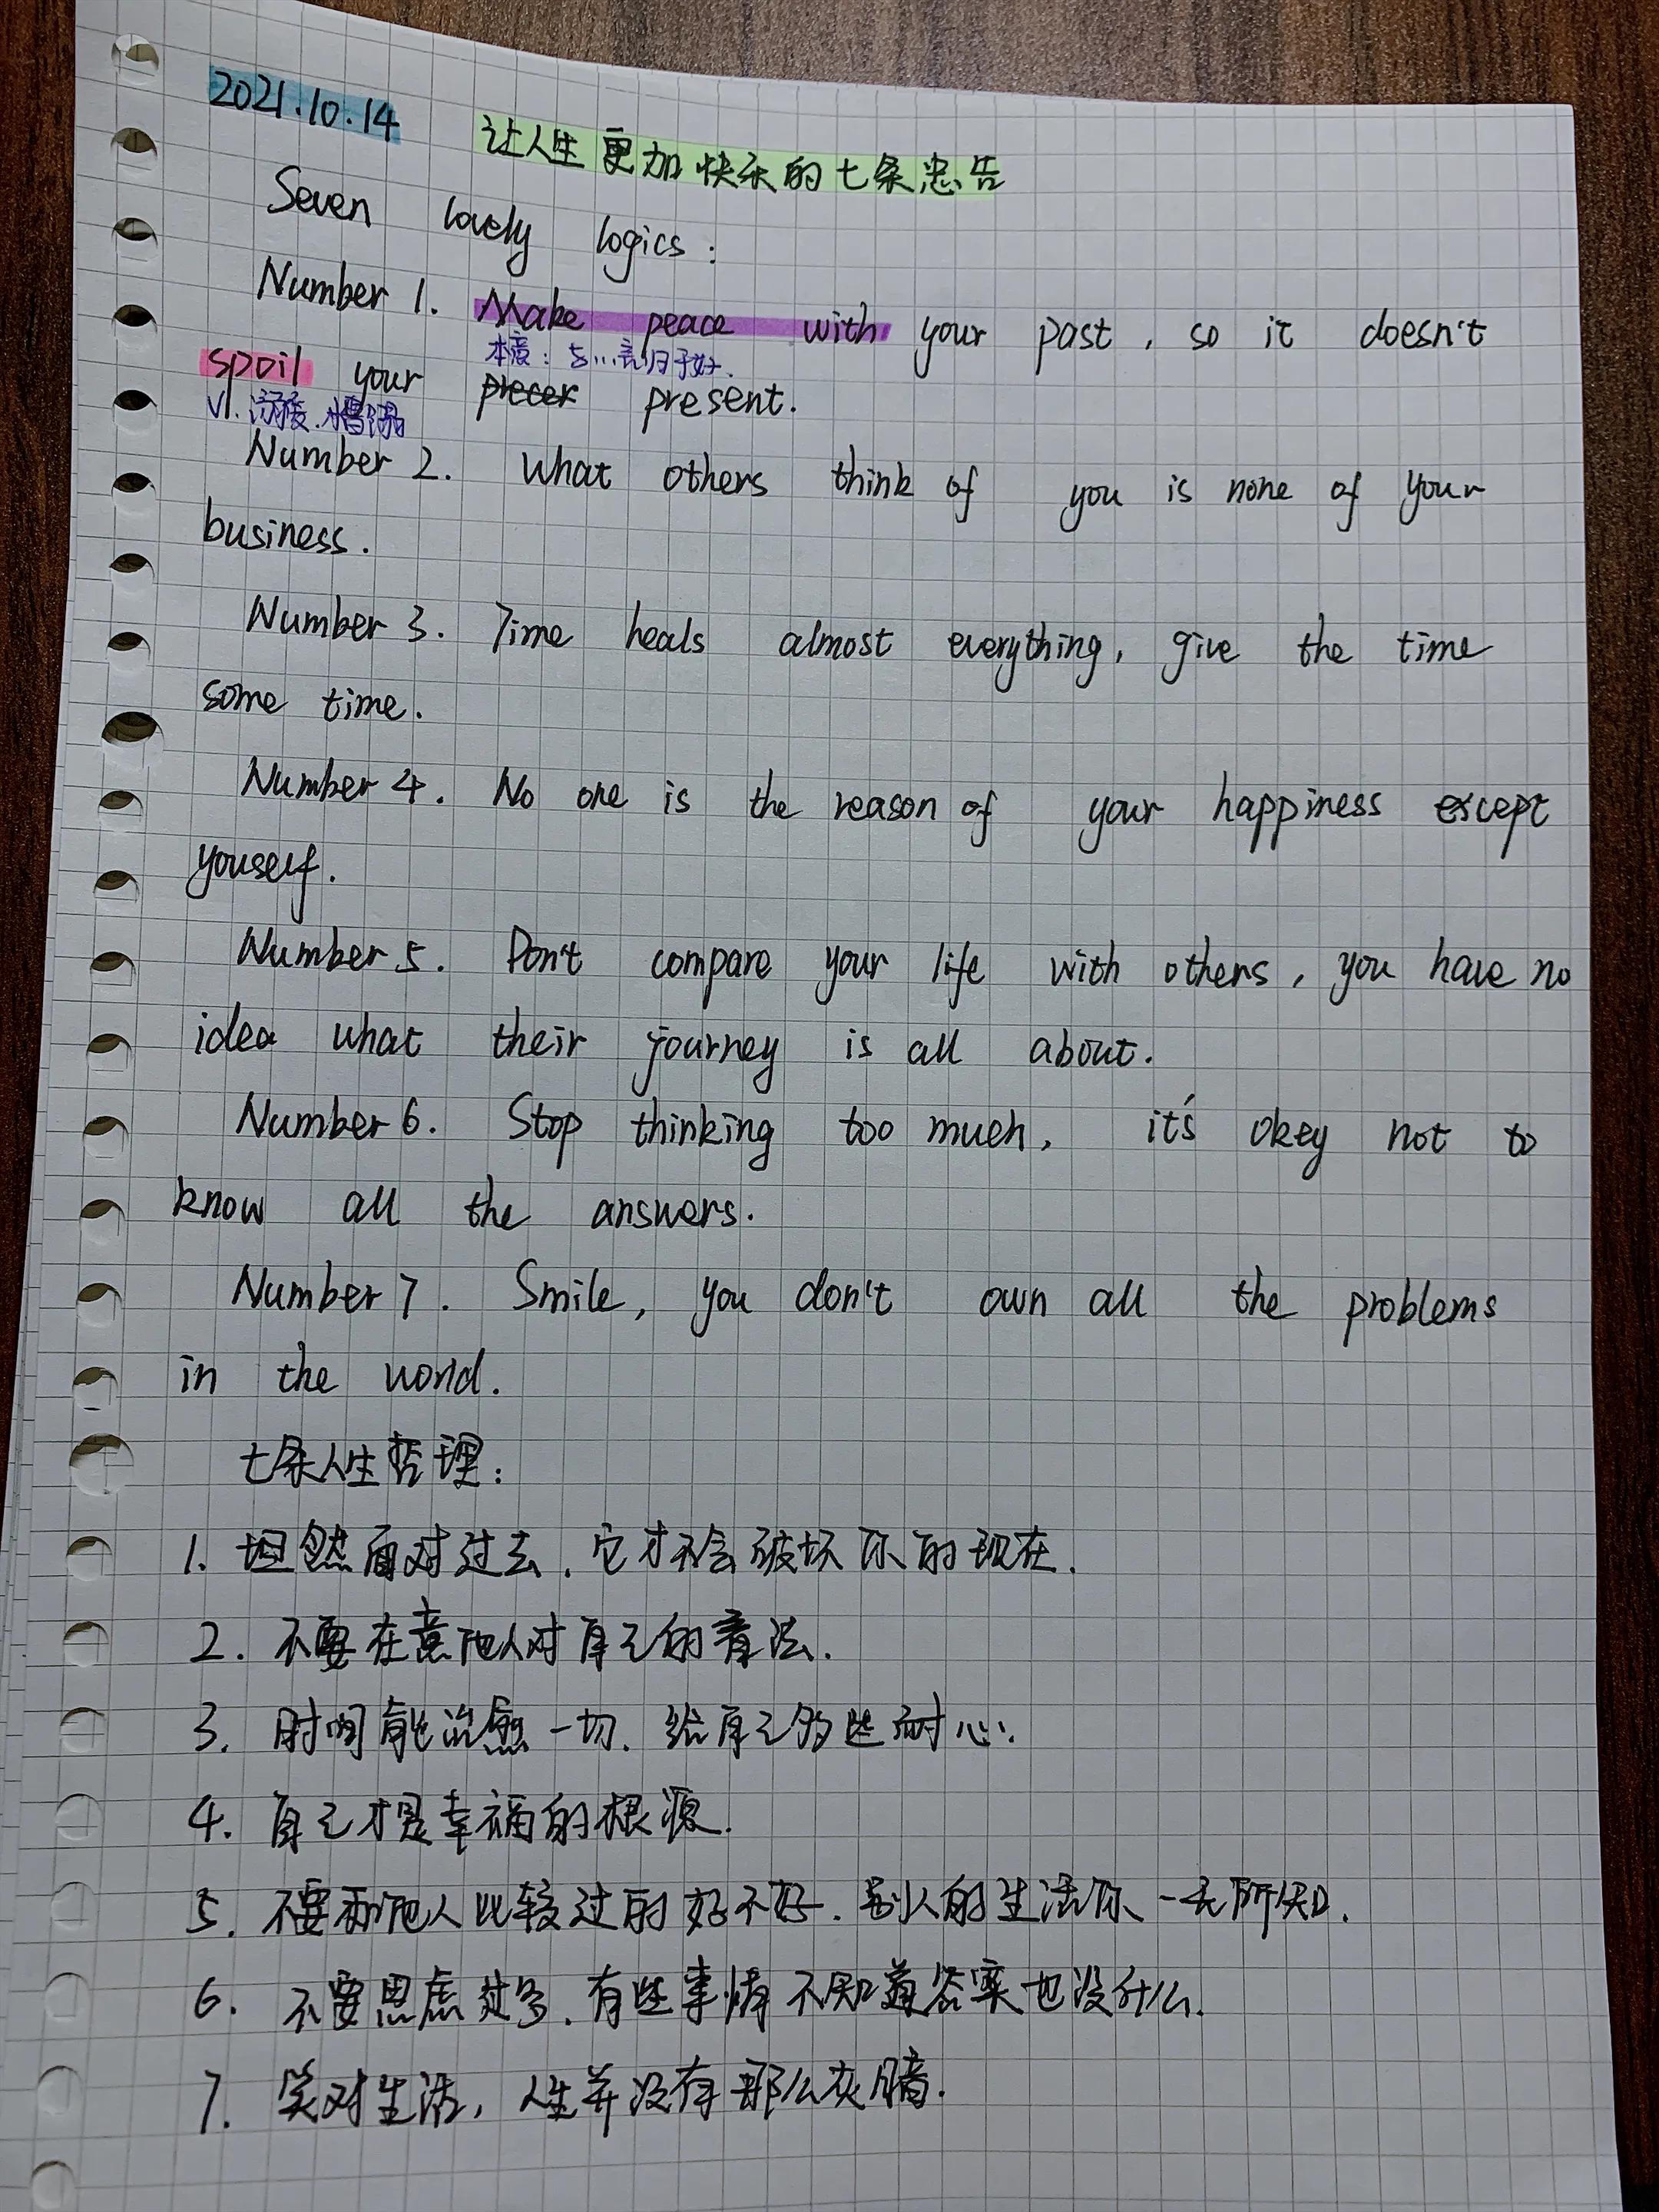 2021.10.14
让人生更加快乐的七条忠告
Seven lovely logics:
Number 1. Make peace with your past, so it doesn't
本意：与...言归于好.
spoil your present.
vt. 溺爱.
Number 2. What others think of you is none of your
business.
Number 3. Time heals almost everything, give the time
some time.
Number 4. No one is the reason of your happiness except
youself.
Number 5. Don't compare your life with others, you have no
idea what their journey is all about.
Number 6. Stop thinking too much, it's okey not to
know all the answers.
Number 7. Smile, you don't own all the problems
in the world.
七条人生哲理：
1. 坦然面对过去，它才不会破坏你的现在.
2. 不要在意他人对自己的看法.
3. 时间能治愈一切. 给自己多些耐心.
4. 自己才是幸福的根源.
5. 不要和他人比较过的好不好. 别人的生活你一无所知.
6. 不要思虑过多. 有些事情不知道答案也没什么.
7. 笑对生活，人生并没有那么灰暗.